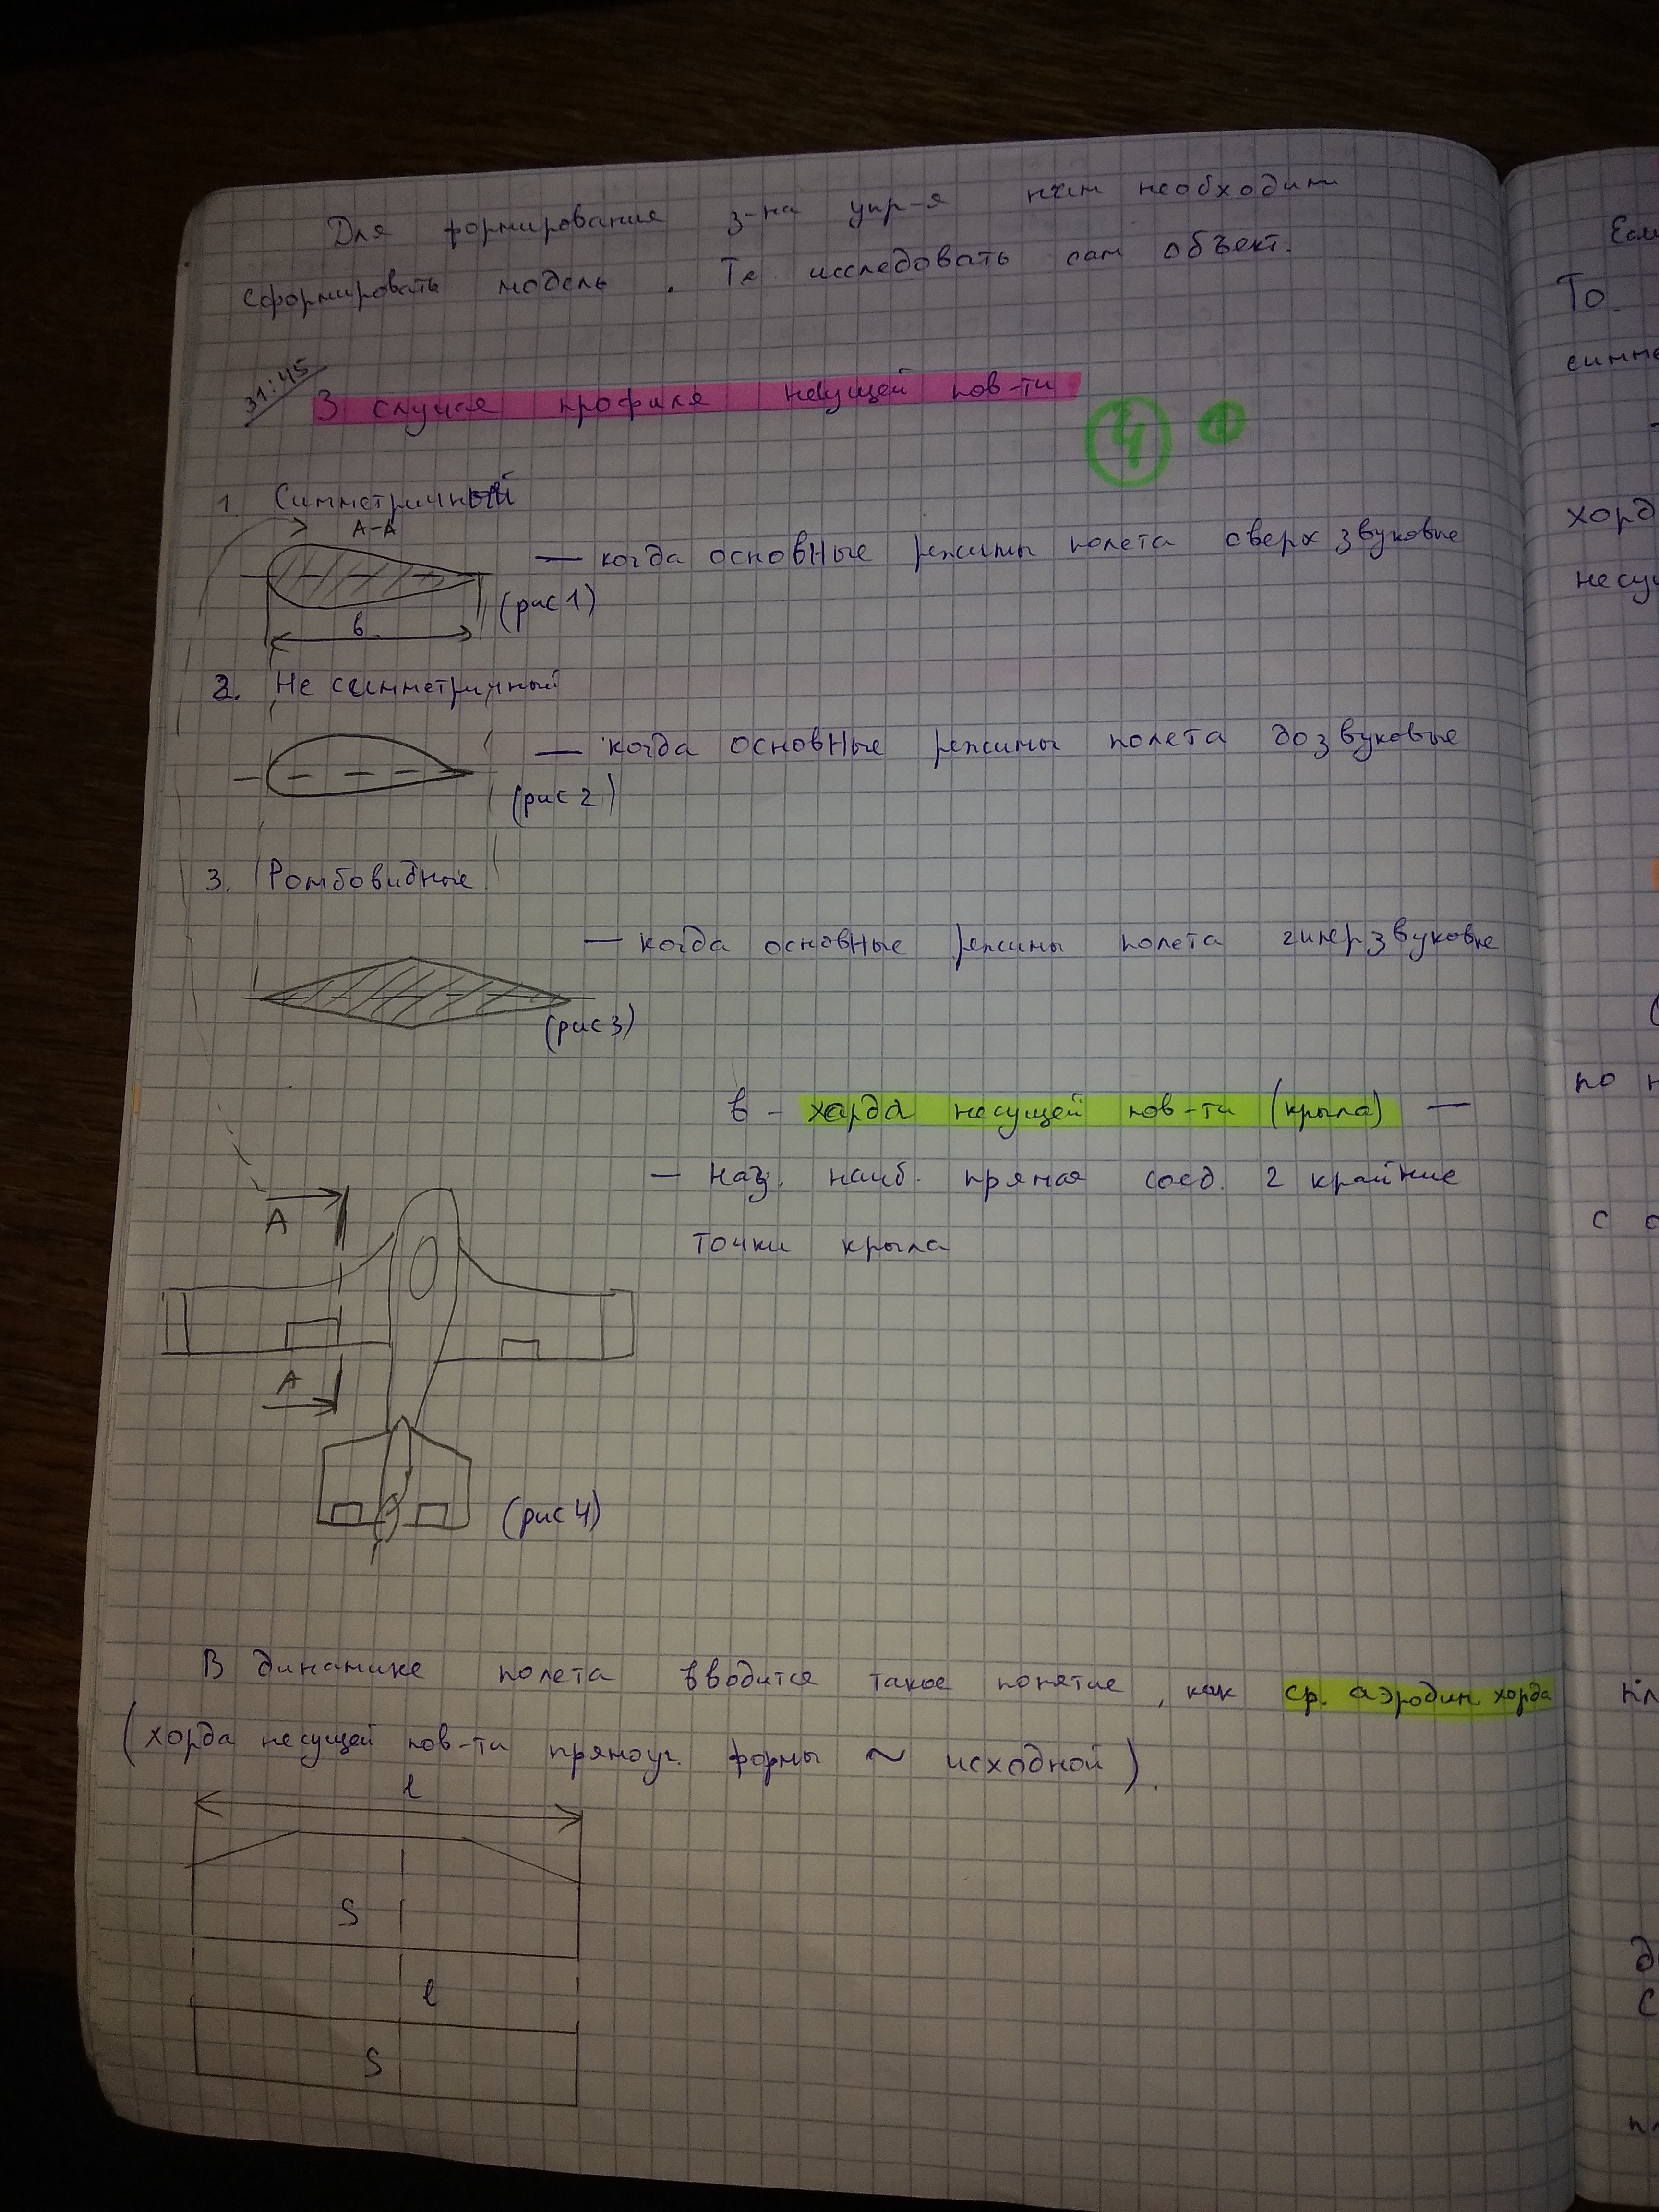 Для формирование з-на упр-я нам необходим
сформировать модель. Те исследовать сам объект.
31:45
3 случая профиля несущей пов-ти
4 1
1. Симметричный
А-А
— когда основные режимы полета сверхзвуковые
(рис 1)
в
2. Не симметричный
— когда основные режимы полета дозвуковые
(рис 2)
3. Ромбовидные
— когда основные режимы полета гиперзвуковые
(рис 3)
в - хорда несущей пов-ти (крыла) —
— наз. наиб. прямая соед. 2 крайние
точки крыла
А
А
(рис 4)
В динамике полета вводится такое понятие, как ср. аэродин. хорда
(хорда несущей пов-ти прямоуг. формы ~ исходной).
l
S
l
S
Если
То
симме
хорд
несу
по н
с о